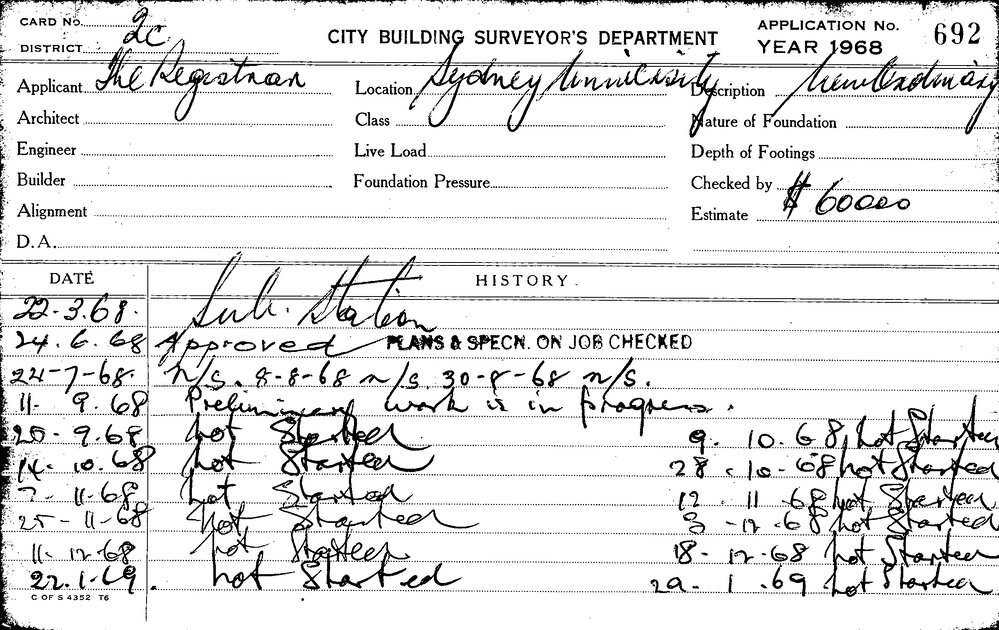 CARD No. 2c
DISTRICT
CITY BUILDING SURVEYOR'S DEPARTMENT
APPLICATION No. 692
YEAR 1968
Applicant The Registrar Location Sydney University Description New Ordinary
Architect Class Nature of Foundation
Engineer Live Load Depth of Footings
Builder Foundation Pressure Checked by
Alignment Estimate $ 60000
D.A.
DATE HISTORY.
22.3.68. Sub. Station
24.6.68 Approved PLANS & SPECN. ON JOB CHECKED
24-7-68. N/S. 8-8-68 n/s. 30-8-68 n/s.
11. 9.68 Preliminary work is in progress.
25-9.68 not Started 9. 10.68 not Started
14.10.68 not Started 28.10-68 not Started
7-11-68 not Started 12. 11.68 not Started
25-11-68 not Started 3-12.68 not Started
11-12-68 not Started 18-12-68 not Started
22.1-69. not Started 29. 1.69 not Started
C OF S 4352 T6